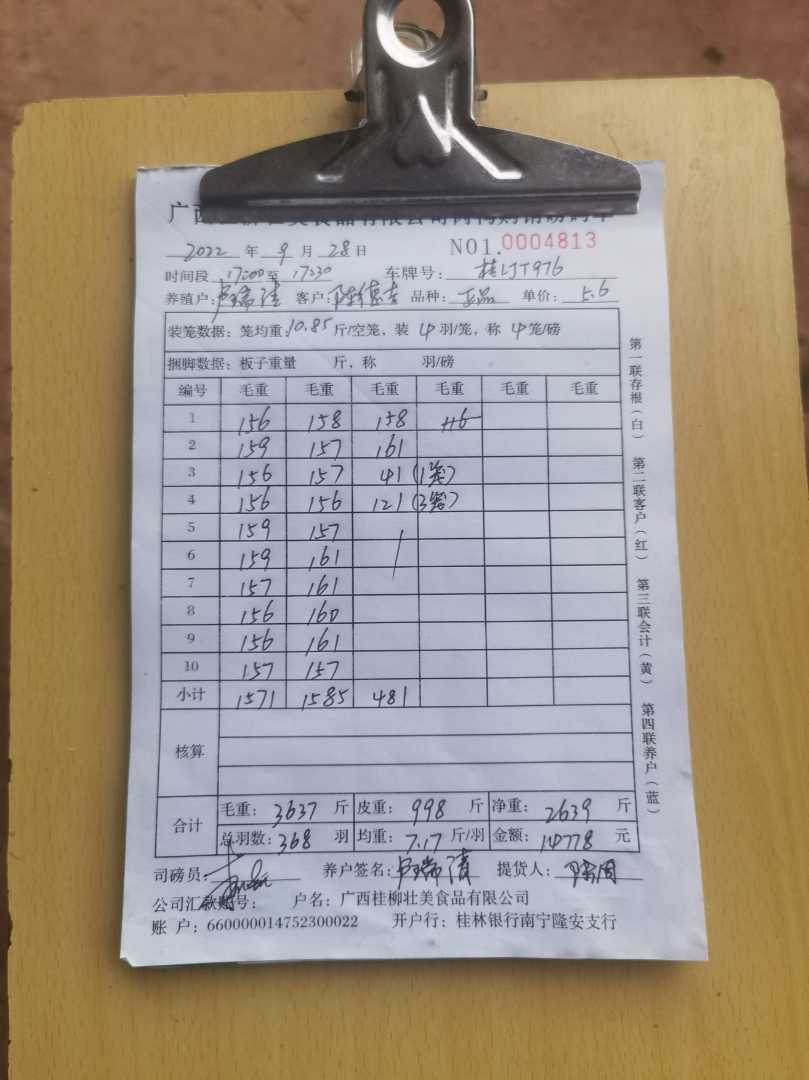 2022 年 9 月 28 日 NO1.0004813
时间段 17:00 至 17:30 车牌号: 桂LJT976
养殖户: 卢瑞清 客户: 陈德 品种: 正品 单价: 5.6
装笼数据: 笼均重: 10.85 斤/空笼, 装 4 羽/笼, 称 4 笼/磅
捆脚数据: 板子重量 斤, 称 羽/磅
编号 毛重 毛重 毛重 毛重 毛重 毛重
1 156 158 158
2 159 157 161
3 156 157 41 (1笼)
4 156 156 121 (3笼)
5 159 157
6 159 161
7 157 161
8 156 160
9 156 161
10 157 157
小计 1571 1585 481
核算
合计 毛重: 3637 斤 皮重: 998 斤 净重: 2639 斤
总羽数: 368 羽 均重: 7.17 斤/羽 金额: 14778 元
司磅员: 养户签名: 卢瑞清 提货人:
公司汇款账号: 户名: 广西桂柳壮美食品有限公司
账 户: 660000014752300022 开户行: 桂林银行南宁隆安支行
第一联存根(白) 第二联客户(红) 第三联会计(黄) 第四联养户(蓝)